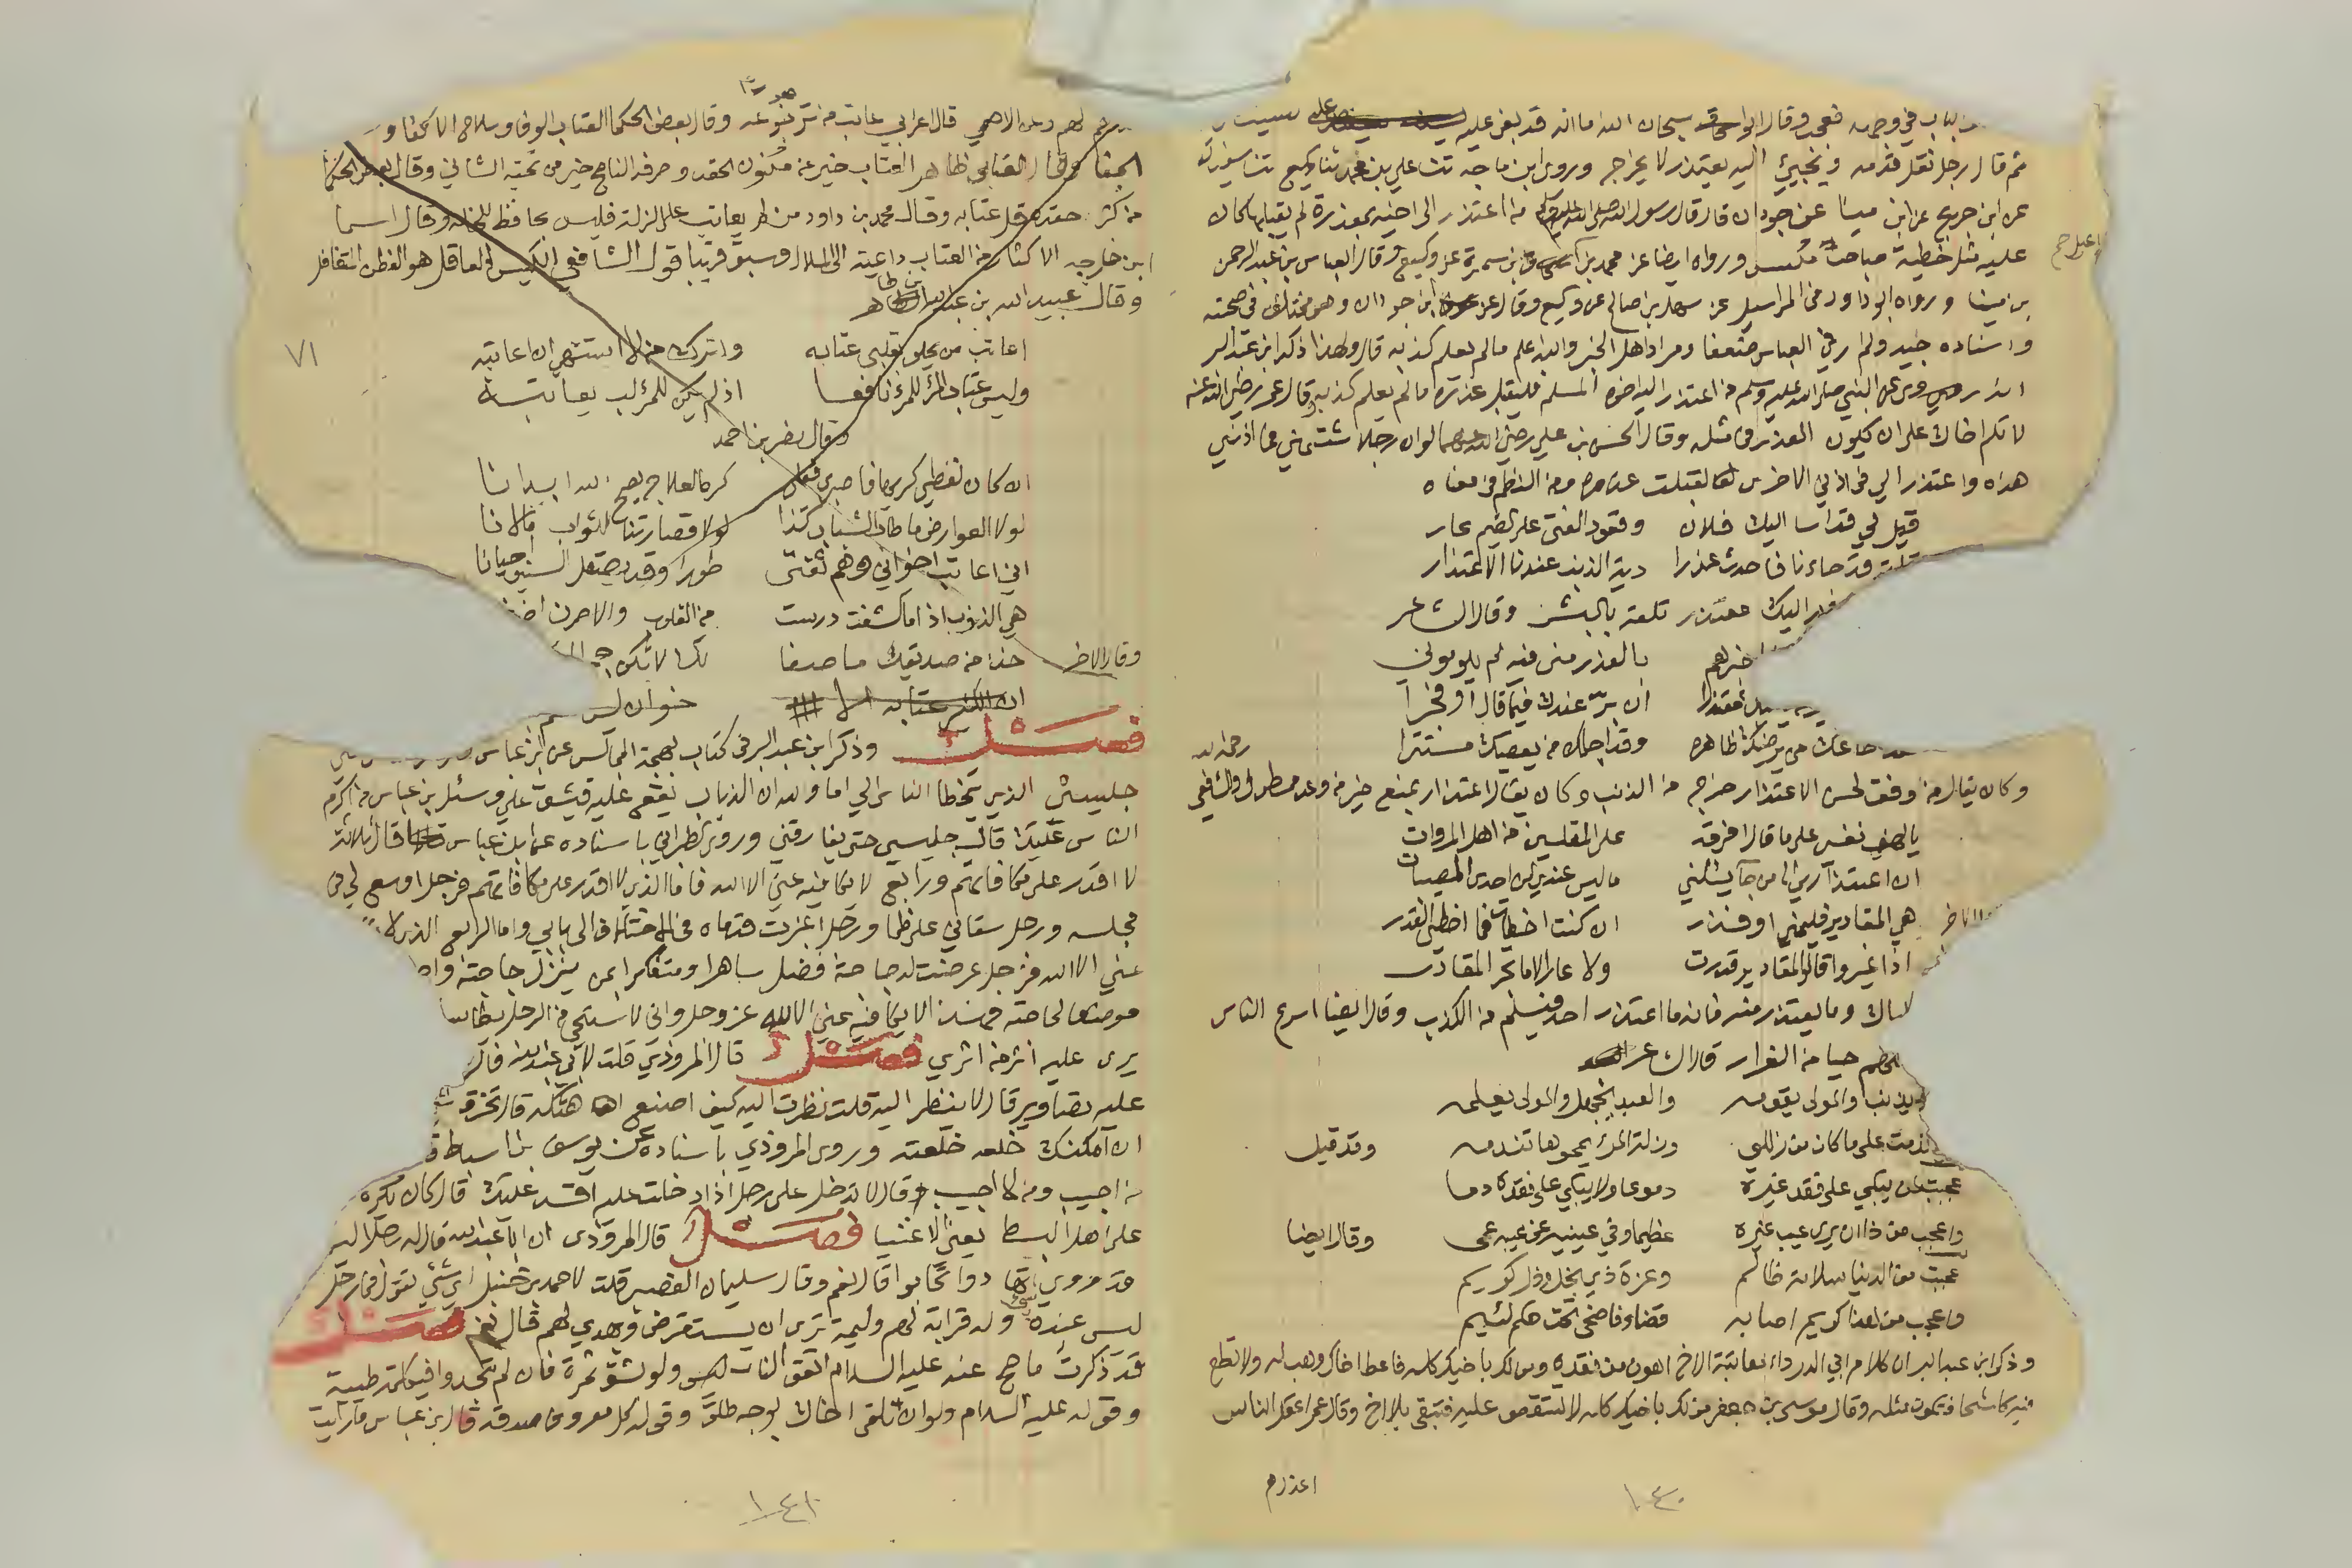 الباب في وجهه فعجب وقال ابو اسحاق سبحان الله ما انه قد بغي عليه
ثم قال رجل نقل قدمه ويجيئ اليه يعتذر لا يخرج وروى ابن ماجه ثنا علي بن محمد ثنا وكيع ثنا سفيان
عن ابن جريج عن ابن مينا عن جودان قال قال رسول الله صلى الله عليه وسلم من اعتذر الى اخيه بمعذرة لم يقبلها كان
عليه مثل خطية صاحب مكس ورواه ايضا عن محمد بن اسماعيل بن سمرة عن وكيع وقال العباس بن عبد الرحمن
بن مينا ورواه ابو داود في المراسيل عن سهل بن صالح عن وكيع وقال عن ابن جودان وهو مختلف في صحبته
واسناده جيد ولم ار في العباس ضعفا ومراد اهل الخبر والله اعلم ما لم يعلم كذبه قال ولهذا ذكر ابن عبد البر
انه روي عن النبي صلى الله عليه وسلم من اعتذر اليه اخوه المسلم فليقبل عذره ما لم يعلم كذبه وقال عمر رضي الله عنه
لا تلم اخاك على ان يكون العذر في مثله وقال الحسن بن علي رضي الله عنهما لو ان رجلا شتمني في اذني
هذه واعتذر الي في اذني الاخرى لقبلت عذره ومن النظم في معناه
قيل لي قد اسا اليك فلان وقعود الفتى على الضيم عار
قلت قد جاءنا فاحدث عذرا دية الذنب عندنا الاعتذار
اليك معتذر تلقه بالبشر وقال الشاعر
خبرهم بالعذر مني فيه لم يلوموني
معتذرا ان بر عندك فيما قال او فجرا
اطاعك من يرضيك ظاهره وقد اجلك من يعصيك مستترا
رحمه الله
وكان يقال من وفق لحسن الاعتذار خرج من الذنب وكان يقال اعتذار بمنع خير من وعد ممطول وللشافعي
يا لهف نفسي على مال افرقه على المقلين من اهل المروات
ان اعتذاري الى من جا يسئلني ما ليس عندي لمن احدى المصيبات
هي المقادير فلمني او فذر ان كنت اخطات فما اخطى القدر
اذا عيروا قالوا المقادير قدرت ولا عار الا ما تجر المقادر
اياك وما يعتذر منه فانه ما اعتذر احد فيسلم من الكذب وقال ايضا اسرع الناس
حيا من الفرار قال الشاعر
يذنب والمولى يقومه والعبد يجهل والمولى يعلمه
ندمت على ما كان من زللي وزلة المرء يمحوها تندمه وقد قيل
عجبت لمن يبكي على فقد غيره دموعا ولا يبكي على فقده دما
واعجب من ذا ان يرى عيب غيره عظيما وفي عينيه عن عيبه عمى وقال ايضا
عجبت من الدنيا سلامة ظالم وعزة ذي بخل وذل كريم
واعجب من هذا كريم اصابه قضاء فاضحى تحت حكم لئيم
وذكر ابن عبد البر ان كلام ابي الدرداء معاتبة الاخ اهون من فقده ومن لك باخيك كله فاعط اخاك وهب له ولا تطع
فيه كاشحا فتكون مثله وقال موسى بن جعفر من لك باخيك كله لا تستقص عليه فتبقى بلا اخ وقال عمر اعقل الناس
اعذرهم
١٤٠
لهم وعن الاصمعي قال اعرابي عاتب من ترجو عوده وقال بعض الحكما العتاب الوفا وسلاح الاكفا و
الجفا وقال العتابي ظاهر العتاب خير من مكنون الحقد وصرفة الناصح خير من تحية الشاني وقال بعض الحكما
من كثر حقده قل عتابه وقال محمد بن داود من لم يعاتب على الزلة فليس بحافظ للخلة وقال اسما
ابن خارجه الاكثار من العتاب داعية الى الملال وسبق قريبا قول الشافعي الكيس العاقل هو الفطن المتغافل
وقال عبيد الله بن عبد الله بن طاهر
اعاتب من يحلو بقلبي عتابه واترك من لا اشتهي ان اعاتبه
وليس عتاب المرء للمرء نافعا اذا لم يكن للمرء لب يعاتبه
٧١
وقال نصر بن احمد
ان كان لفظي كريها فاصبري فعلى كره العلاج يصح الله ابدانا
لولا العوارض ما طاب الشباب كذا لولا قصارتنا للثواب ما لانا
اني اعاتب اخواني وهم ثقتي طورا وقد يصقل السيف احيانا
هي الذنوب اذا ما كشفت درست من القلوب والا صرن اضغانا
وقال الاخر خذ من صديقك ما صفا لك لا تكن
فصل وذكر ابن عبد البر في كتاب بهجة المجالس عن ابن عباس
جليسي الذي يتخطا الناس الي اما والله ان الذباب يقع عليه فيشق علي وسئل ابن عباس من اكرم
الناس عليك قال جليسي حتى يفارقني وروى الطبراني باسناده عن ابن عباس قال ثلاثة
لا اقدر على مكافاتهم ورابع لا يكافيه عني الا الله فاما الذي لا اقدر على مكافاتهم فرجل اوسع لي في
مجلسه ورجل سقاني على ظما ورجل اغبرت قدماه في الاختلاف الى بابي واما الرابع الذي لا
عني الا الله فرجل عرضت له حاجة فضل ساهرا ومتفكرا بمن ينزل حاجته
موضعا لحاجته فهذا لا يكافيه عني الا الله عز وجل واني لاستحي من الرجل يطا بساطي
يرى عليه اثر من اثري فصل قال المروذي قلت لابي عبد الله
عليه تصاوير قال لا ينظر اليه قلت نظرت اليه كيف اصنع اهتكه قال تخرق
ان امكنك خلعه خلعته وروى المروذي باسناده عن يوسف بن اسباط
من اجيب ومن لا اجيب قال لا تدخل على رجل اذا دخلت عليه افسد عليك قال كان يكره
على اهل البسط يعني الاغنيا فصل قال المروذي ان ابا عبد الله قال له رجل
قد روي تهادوا تحابوا قال نعم وقال سليمان القصير قلت لاحمد بن حنبل اي شئ تقول في رجل
ليس عنده شئ وله قرابة لهم وليمة ترى ان يستقرض ويهدي لهم قال نعم فصل
قد ذكرت ما صح عنه عليه السلام اتقوا النار ولو بشق تمرة فان لم تجدوا فبكلمة طيبة
وقوله عليه السلام ولو ان تلقى اخاك بوجه طلق وقوله كل معروف صدقة قال ابن عباس ما رايت
١٤١